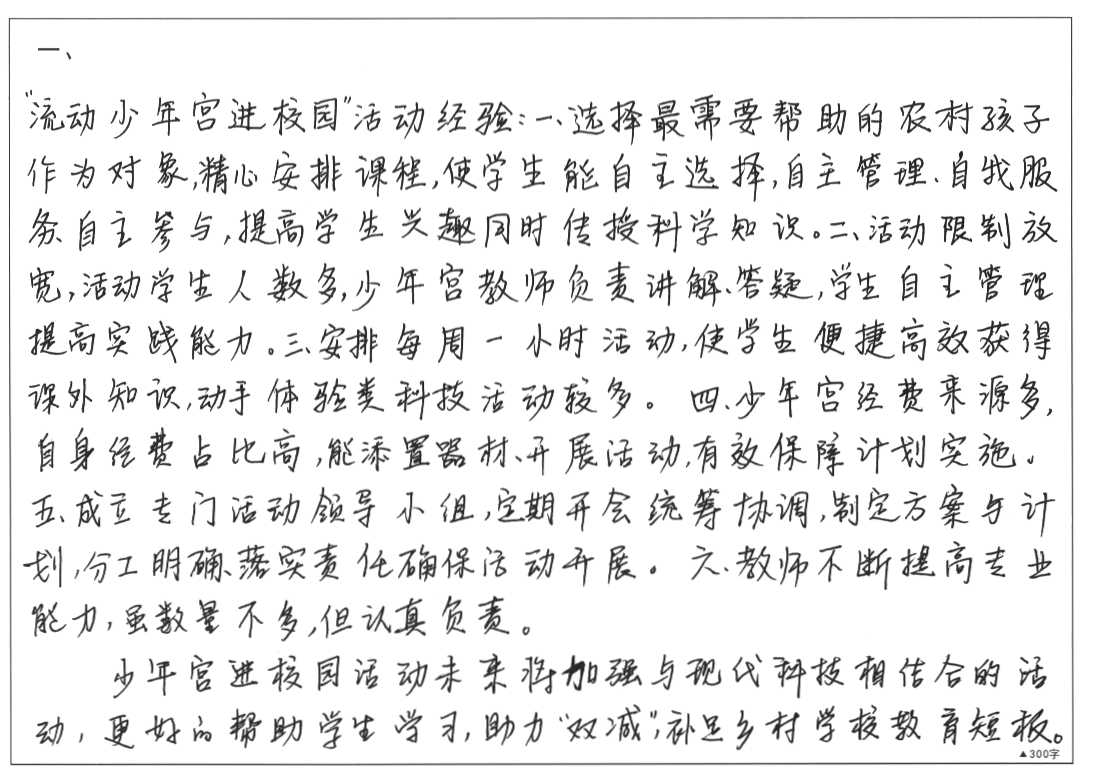 一、
“流动少年宫进校园”活动经验:一、选择最需要帮助的农村孩子
作为对象,精心安排课程,使学生能自主选择,自主管理、自我服
务、自主参与,提高学生兴趣同时传授科学知识。二、活动限制放
宽,活动学生人数多,少年宫教师负责讲解、答疑,学生自主管理
提高实践能力。三、安排每周一小时活动,使学生便捷高效获得
课外知识,动手体验类科技活动较多。四、少年宫经费来源多,
自身经费占比高,能添置器材、开展活动,有效保障计划实施。
五、成立专门活动领导小组,定期开会统筹协调,制定方案与计
划,分工明确、落实责任确保活动开展。六、教师不断提高专业
能力,虽数量不多,但认真负责。
少年宫进校园活动未来将加强与现代科技相结合的活
动,更好的帮助学生学习,助力“双减”,补足乡村学校教育短板。
▲300字